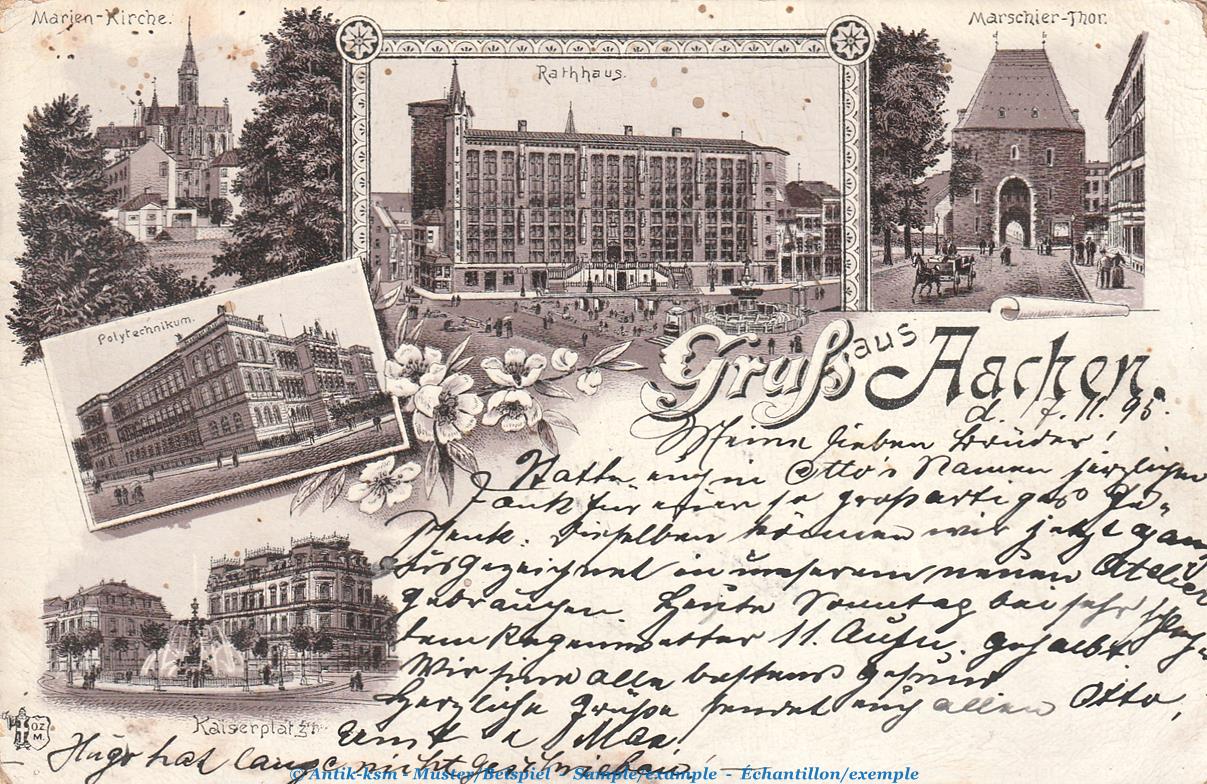 Marien-Kirche.
Rathhaus.
Marschier-Thor.
Polytechnikum.
Gruß aus Aachen.
d. 7.11.95.
Meine lieben Brüder!
Statte euch in Otto's Namen herzlichen
Dank für euer so großartiges Ge-
schenk. Dieselben können wir jetzt ganz
ausgezeichnet in unserem neuen Atelier
gebrauchen. Heute Sonntag bei sehr schlech-
tem Regenwetter 11 Aufn. gehabt
Wir sind alle bestens gesund
Herzliche Grüße sendet euch allen Otto,
Ernst u Max.
Kaiserplatz
Hugo hat lange nicht geschrieben!
©Antik-ksm - Muster/Beispiel - Sample/example - Échantillon/exemple